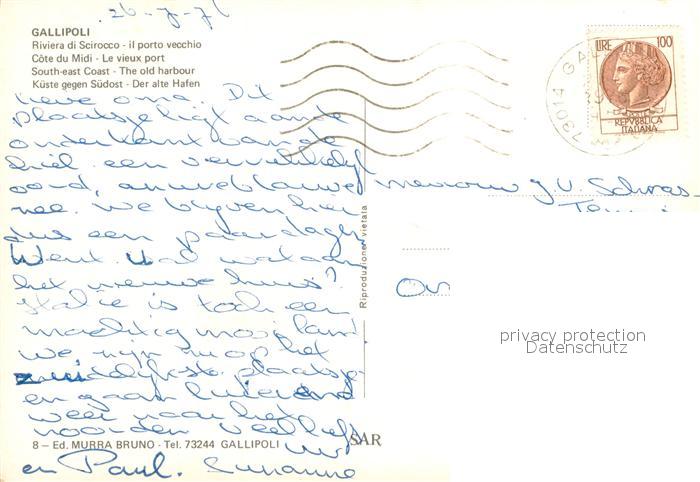 26-7-71
GALLIPOLI
Riviera di Scirocco - il porto vecchio
Côte du Midi - Le vieux port
South-east Coast - The old harbour
Küste gegen Südost - Der alte Hafen
Lieve oma. Dit
plaatsje ligt aan de
onderkant van de
hiel. een verrukkelijk
oord, blauwe
zee. We blijven hier
dus een paar dagen
Went U al wat aan
het nieuwe huis?
Italië is toch een
machtig mooi land.
We zijn nu op het
zuidelijkste plaatsje
en gaan luierend
weer naar het
noorden Veel liefs
en Paul. Susanne
8 - Ed. MURRA BRUNO - Tel. 73244 GALLIPOLI
SAR
Riproduzione vietata
LIRE 100
REPVBBLICA
ITALIANA
73014 GAL
mevrouw J.V.
privacy protection
Datenschutz